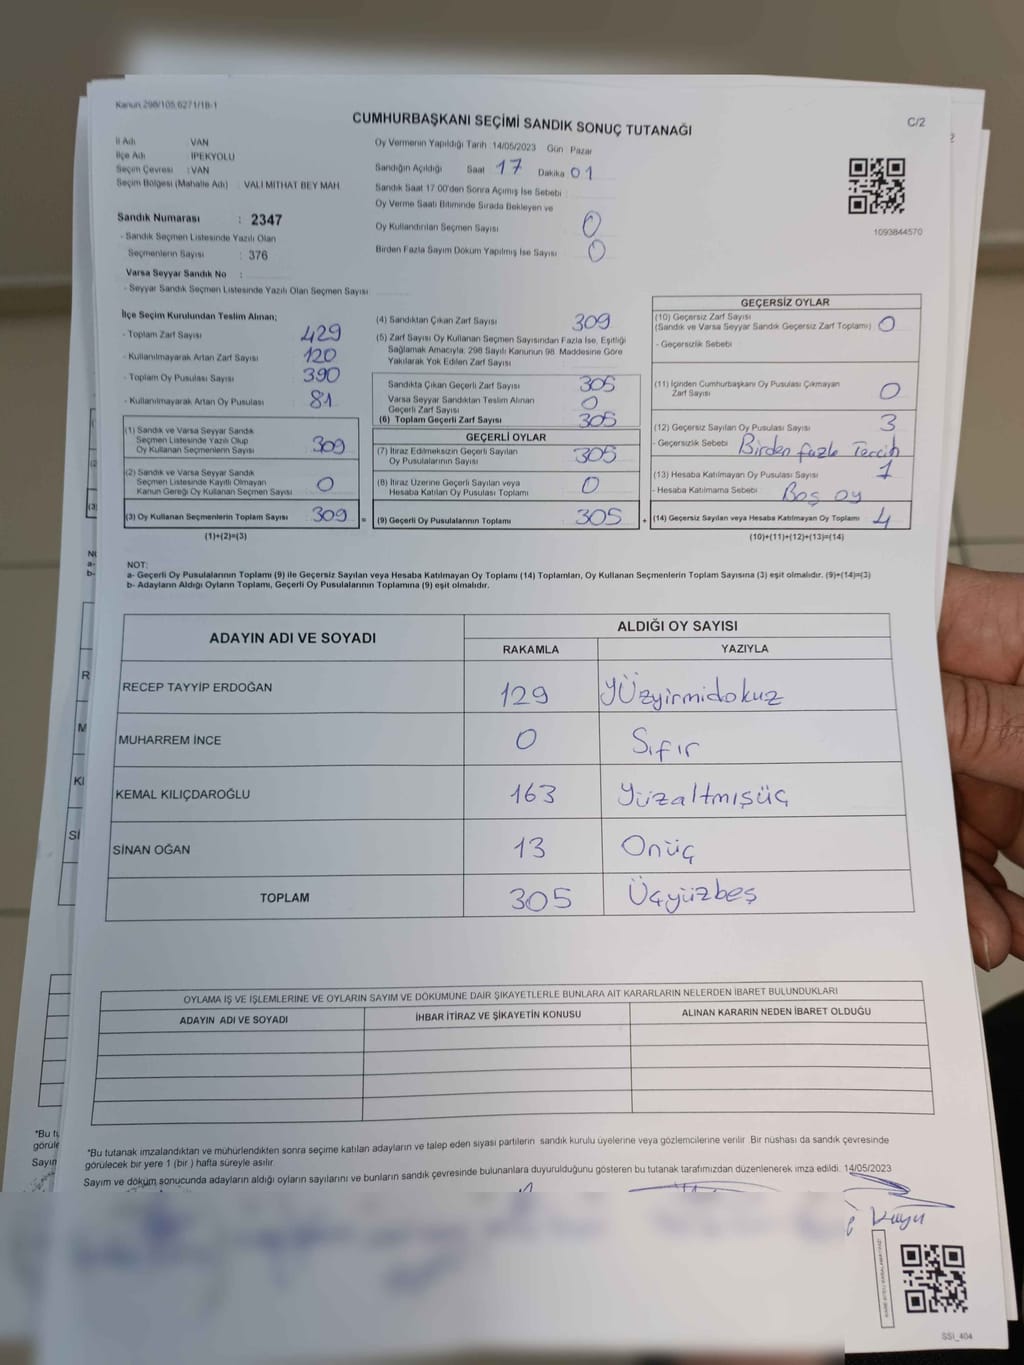 Kanun 298/105,6271/18-1
CUMHURBAŞKANI SEÇİMİ SANDIK SONUÇ TUTANAĞI
C/2
İl Adı : VAN
İlçe Adı : İPEKYOLU
Seçim Çevresi : VAN
Seçim Bölgesi (Mahalle Adı) : VALİ MİTHAT BEY MAH.
Sandık Numarası : 2347
- Sandık Seçmen Listesinde Yazılı Olan
Seçmenlerin Sayısı : 376
Varsa Seyyar Sandık No :
- Seyyar Sandık Seçmen Listesinde Yazılı Olan Seçmen Sayısı
Oy Vermenin Yapıldığı Tarih 14/05/2023 Gün Pazar
Sandığın Açıldığı Saat 17 Dakika 01
Sandık Saat 17.00'den Sonra Açımış İse Sebebi
Oy Verme Saati Bitiminde Sırada Bekleyen ve
Oy Kullandırılan Seçmen Sayısı 0
Birden Fazla Sayım Döküm Yapılmış İse Sayısı 0
1093844570
İlçe Seçim Kurulundan Teslim Alınan;
- Toplam Zarf Sayısı 429
- Kullanılmayarak Artan Zarf Sayısı 120
- Toplam Oy Pusulası Sayısı 390
- Kullanılmayarak Artan Oy Pusulası 81
(1) Sandık ve Varsa Seyyar Sandık
Seçmen Listesinde Yazılı Olup
Oy Kullanan Seçmenlerin Sayısı 309
(2) Sandık ve Varsa Seyyar Sandık
Seçmen Listesinde Kayıtlı Olmayan
Kanun Gereği Oy Kullanan Seçmen Sayısı 0
(3) Oy Kullanan Seçmenlerin Toplam Sayısı 309
(1)+(2)=(3)
=
(4) Sandıktan Çıkan Zarf Sayısı 309
(5) Zarf Sayısı Oy Kullanan Seçmen Sayısından Fazla İse, Eşitliği
Sağlamak Amacıyla, 298 Sayılı Kanunun 98. Maddesine Göre
Yakılarak Yok Edilen Zarf Sayısı
Sandıkta Çıkan Geçerli Zarf Sayısı 305
Varsa Seyyar Sandıktan Teslim Alınan
Geçerli Zarf Sayısı 0
(6) Toplam Geçerli Zarf Sayısı 305
GEÇERLİ OYLAR
(7) İtiraz Edilmeksizin Geçerli Sayılan
Oy Pusulalarının Sayısı 305
(8) İtiraz Üzerine Geçerli Sayılan veya
Hesaba Katılan Oy Pusulası Toplamı 0
(9) Geçerli Oy Pusulalarının Toplamı 305
+
GEÇERSİZ OYLAR
(10) Geçersiz Zarf Sayısı
(Sandık ve Varsa Seyyar Sandık Geçersiz Zarf Toplamı) 0
- Geçersizlik Sebebi
(11) İçinden Cumhurbaşkanı Oy Pusulası Çıkmayan
Zarf Sayısı 0
(12) Geçersiz Sayılan Oy Pusulası Sayısı 3
- Geçersizlik Sebebi Birden fazla Tercih
(13) Hesaba Katılmayan Oy Pusulası Sayısı 1
- Hesaba Katılmama Sebebi Boş oy
(14) Geçersiz Sayılan veya Hesaba Katılmayan Oy Toplamı 4
(10)+(11)+(12)+(13)=(14)
NOT:
a- Geçerli Oy Pusulalarının Toplamı (9) ile Geçersiz Sayılan veya Hesaba Katılmayan Oy Toplamı (14) Toplamları, Oy Kullanan Seçmenlerin Toplam Sayısına (3) eşit olmalıdır. (9)+(14)=(3)
b- Adayların Aldığı Oyların Toplamı, Geçerli Oy Pusulalarının Toplamına (9) eşit olmalıdır.
ADAYIN ADI VE SOYADI
ALDIĞI OY SAYISI
RAKAMLA YAZIYLA
RECEP TAYYİP ERDOĞAN 129 Yüzyirmidokuz
MUHARREM İNCE 0 Sıfır
KEMAL KILIÇDAROĞLU 163 Yüzaltmışüç
SİNAN OĞAN 13 Onüç
TOPLAM 305 Üçyüzbeş
OYLAMA İŞ VE İŞLEMLERİNE VE OYLARIN SAYIM VE DÖKÜMÜNE DAİR ŞİKAYETLERLE BUNLARA AİT KARARLARIN NELERDEN İBARET BULUNDUKLARI
ADAYIN ADI VE SOYADI İHBAR İTİRAZ VE ŞİKAYETİN KONUSU ALINAN KARARIN NEDEN İBARET OLDUĞU
*Bu tutanak imzalandıktan ve mühürlendikten sonra seçime katılan adayların ve talep eden siyasi partilerin sandık kurulu üyelerine veya gözlemcilerine verilir. Bir nüshası da sandık çevresinde
görülecek bir yere 1 (bir ) hafta süreyle asılır.
Sayım ve döküm sonucunda adayların aldığı oyların sayılarını ve bunların sandık çevresinde bulunanlara duyurulduğunu gösteren bu tutanak tarafımızdan düzenlenerek imza edildi. 14/05/2023
SSİ_404